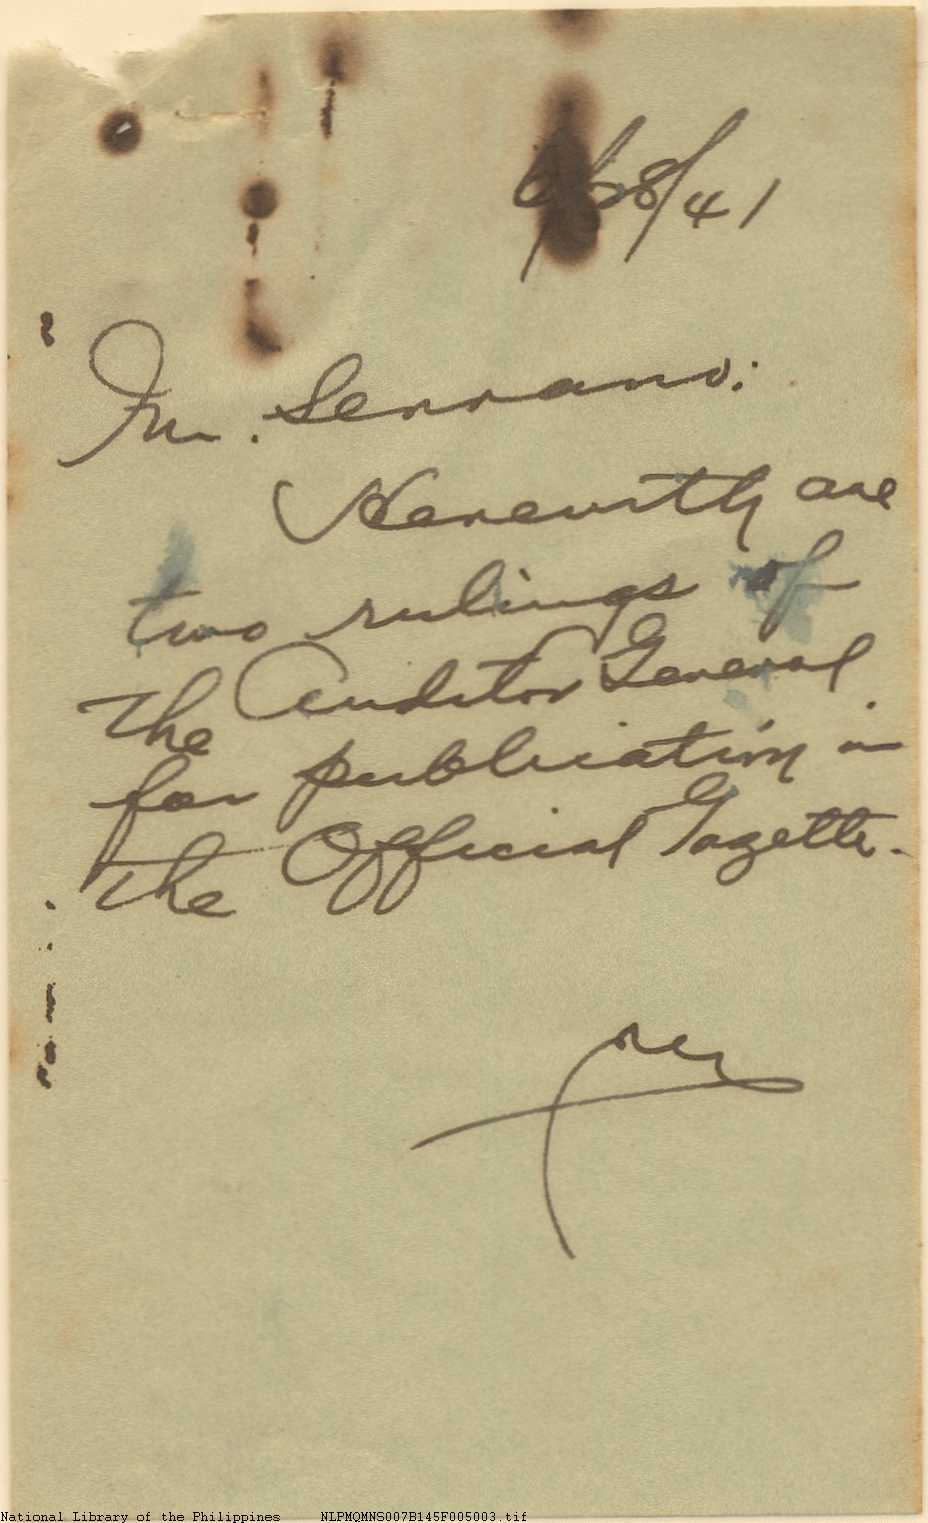 6/28/41
Mr. Serrano:
Herewith are
two rulings of
the Auditor General
for publication in
the Official Gazette.
National Library of the Philippines NLPMQMNS007B145F005003.tif